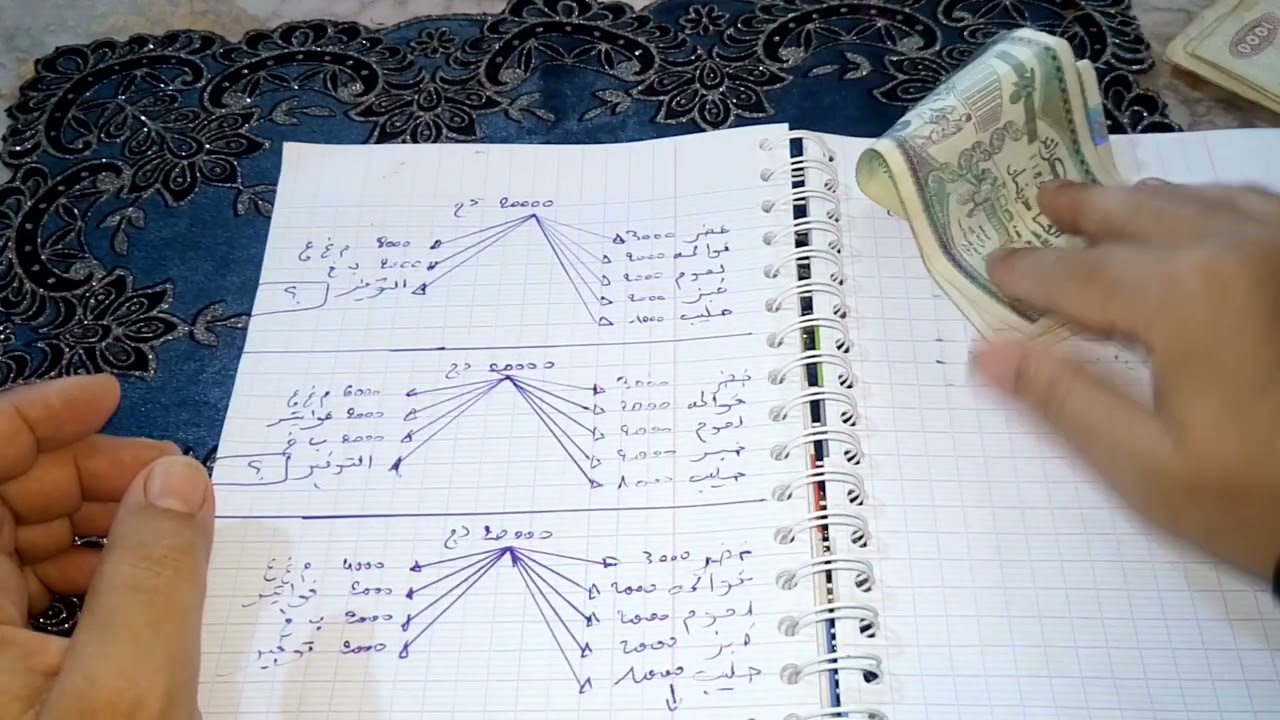 20000 دج
خضر 3000
فواكه 2000
لحوم 2000
خبز 2000
حليب 1000
8000 م غ ع
2000 ب خ
التوفير ؟
20000 دج
خضر 3000
فواكه 2000
لحوم 2000
خبز 2000
حليب 1000
6000 م غ ع
2000 فواتير
2000 ب خ
التوفير ؟
20000 دج
خضر 3000
فواكه 2000
لحوم 2000
خبز 2000
حليب 1000
4000 م غ ع
2000 فواتير
2000 ب خ
2000 توفير
1000